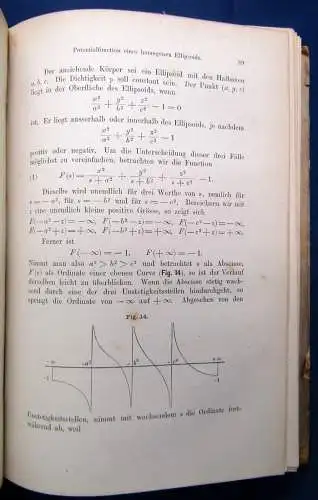 Potentialfunction eines homogenen Ellipsoids. 59
Der anziehende Körper sei ein Ellipsoid mit den Halbaxen
a, b, c. Die Dichtigkeit ρ soll constant sein. Der Punkt (x, y, z)
liegt in der Oberfläche des Ellipsoids, wenn
x²/a² + y²/b² + z²/c² − 1 = 0
ist. Er liegt ausserhalb oder innerhalb des Ellipsoids, je nachdem
x²/a² + y²/b² + z²/c² − 1
positiv oder negativ. Um die Unterscheidung dieser drei Fälle
möglichst zu vereinfachen, betrachten wir die Function
(1) F(s) = x²/(s + a²) + y²/(s + b²) + z²/(s + c²) − 1.
Dieselbe wird unendlich für drei Werthe von s, nemlich für
s = − a², für s = − b² und für s = − c². Bezeichnen wir mit
ε eine unendlich kleine positive Grösse, so zeigt sich
F(−a²−ε) = −∞, F(−b²−ε) = −∞, F(−c²−ε) = −∞,
F(−a²+ε) = +∞, F(−b²+ε) = +∞, F(−c²+ε) = +∞.
Ferner ist
F(−∞) = −1, F(+∞) = −1.
Nimmt man also a² > b² > c² und betrachtet s als Abscisse,
F(s) als Ordinate einer ebenen Curve (Fig. 14), so ist der Verlauf
derselben leicht zu überblicken. Wenn die Abscisse stetig wach-
send durch eine der drei Unstetigkeitsstellen hindurchgeht, so
springt die Ordinate von −∞ auf +∞. Abgesehen von den
Fig. 14.
−a² −b² −c²
−1 −1
Unstetigkeitsstellen, nimmt mit wachsendem s die Ordinate fort-
während ab, weil